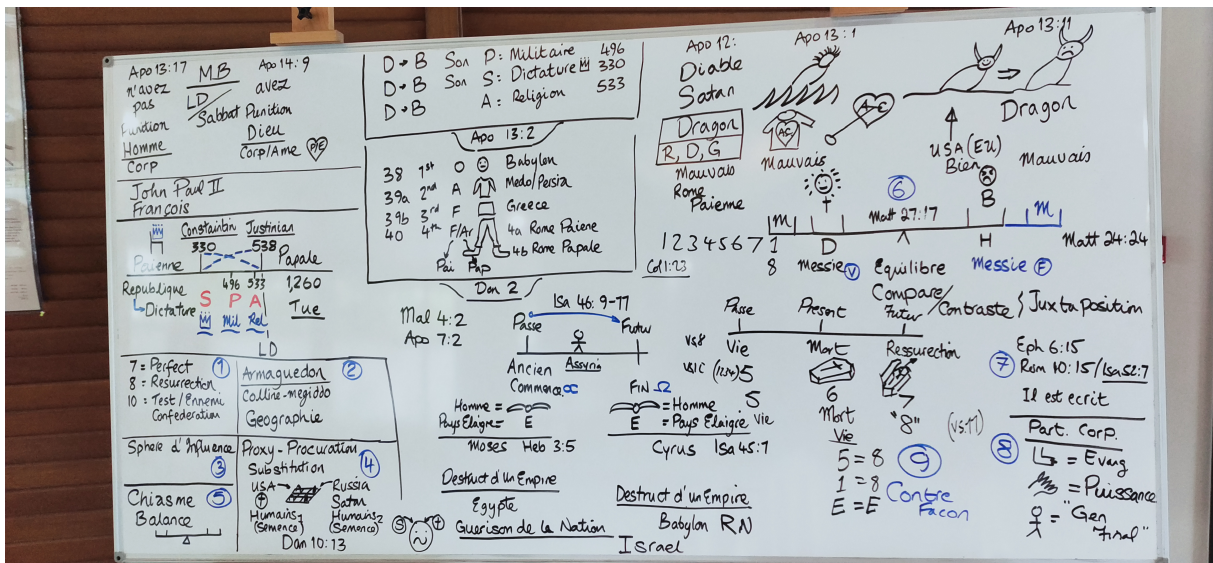 Apo 13:17
n'avez
pas
Punition
Homme
Corp
MB
LD
Sabbat
Apo 14:9
avez
Punition
Dieu
Corp/Ame P/E
John Paul II
François
Constantin Justinian
330 538
Paienne Papale
496 533 1,260
Republique
Dictature
S P A
Mil Rel
Tue
LD
7 = Perfect 1
8 = Resurrection
10 = Test/Ennemi
Confederation
Armaguedon 2
Colline-megiddo
Geographie
Sphere d'Influence
3
Proxy-Procuration
Substitution 4
USA Russia
Satan
Humains 1 Humains 2
(Semence) (Semence)
Dan 10:13
Chiasme 5
Balance
D → B Son P: Militaire 496
D → B Son S: Dictature 330
D → B A: Religion 533
Apo 13:2
38 1st O Babylon
39a 2nd A Medo/Persia
39b 3rd F Greece
40 4th F/Ar 4a Rome Paiene
Pai Pap 4b Rome Papale
Dan 2
Mal 4:2
Apo 7:2
Isa 46:9-11
Passe Futur
Assyria
Ancien
Commence ∝ FIN Ω
Homme = = Homme
Pays Elaigre E E = Pays Elaigre Vie
Moses Heb 3:5 Cyrus Isa 45:7
Destruct d'un Empire
Egypte
Guerison de la Nation
Destruct d'un Empire
Babylon RN
Israel
S
Apo 12:
Diable
Satan
Dragon
R, D, G
Mauvais
Rome
Paienne
Apo 13:1
AC
Mauvais
A C
Apo 13:11
Dragon
USA (EU)
Bien
Mauvais
6
B
M Matt 27:17 M
1 2 3 4 5 6 7 1 D H Matt 24:24
Col 1:23
8 Messie V Equilibre Messie F
Compare/Contraste } Juxtaposition
Passe Present Futur
vs 8 Vie Mort Ressurection
5
5 6 7
Mort "8" (vs:11)
Vie
5 = 8 9
1 = 8 Contre
E = E Facon
Eph 6:15
7 Rom 10:15/Isa 52:7
Il est ecrit
Part. Corp.
8 = Evang
= Puissance
= "Gen
Final"